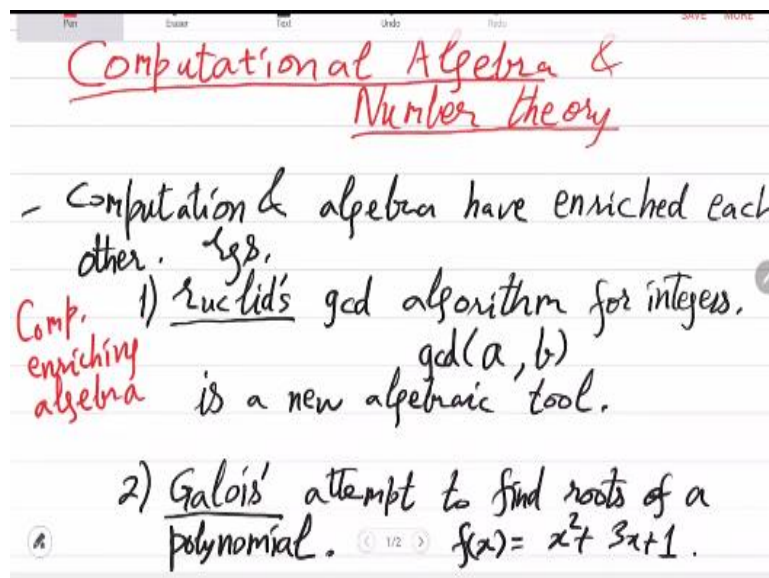 Pen Eraser Text Undo Redo SAVE MORE
Computational Algebra &
Number theory
- Computation & algebra have enriched each
other. Egs.
1) Euclid's gcd algorithm for integers.
gcd(a, b)
is a new algebraic tool.
Comp.
enriching
algebra
2) Galois' attempt to find roots of a
polynomial. f(x) = x²+ 3x+1.
1/2